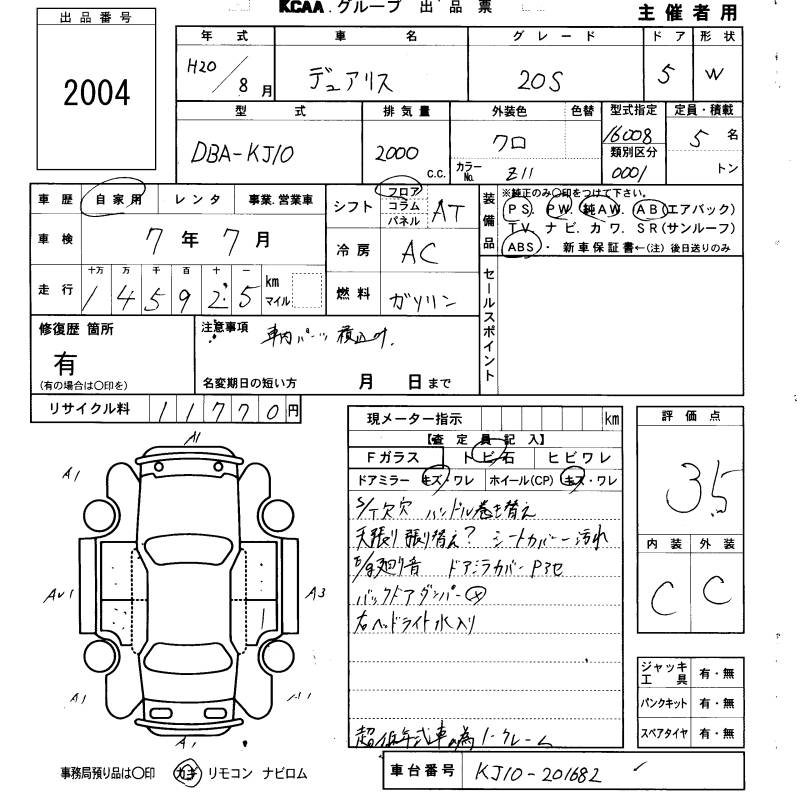 KCAA.グループ 出品票
主催者用
出品番号
2004
年式 車名 グレード ドア 形状
H20/8月 デュアリス 20S 5 W
型式 排気量 外装色 色替 型式指定 定員・積載
DBA-KJ10 2000 C.C. クロ カラーNo. Z11 16008 5名
類別区分 0001 トン
車歴 自家用 レンタ 事業.営業車
車検 7年7月
走行 十万 万 千 百 十 一
145925 km マイル
シフト フロア コラム パネル AT
冷房 AC
燃料 ガソリン
装備品
※純正のみ○印をつけて下さい。
PS. PW. 純AW. AB(エアバック)
TV. ナビ. カワ. SR(サンルーフ)
ABS・新車保証書←(注)後日送りのみ
セールスポイント
修復歴 箇所
有
(有の場合は○印を)
注意事項 車内パーツ積込み.
名変期日の短い方 月 日まで
リサイクル料 11770円
現メーター指示 km
【査定員記入】
Fガラス トビ石 ヒビワレ
ドアミラー キズ・ワレ ホイール(CP) キズ・ワレ
S/T欠穴 ハンドル巻き替え
天張り張り替え? シートカバー汚れ
廻り音 ドアミラカバーPアセ
バックドアダンパー
右ヘッドライト水入り
超低年式車の為ノークレーム
評価点
3.5
内装 外装
C C
ジャッキ工具 有・無
パンクキット 有・無
スペアタイヤ 有・無
A1
A1
A3
A1
A1
A1
事務局預り品は○印 カギ リモコン ナビロム
車台番号 KJ10-201682